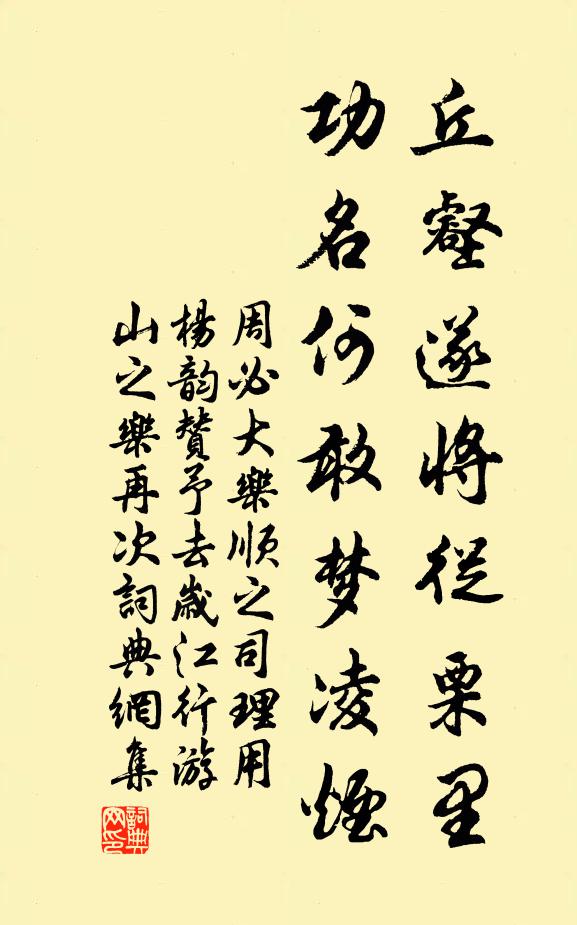 丘壑遂将從栗里
功名何敢梦凌煙
周必大樂順之司理用
楊韵贊予去歲江行游
山之樂再次詞典網集
詞典網印